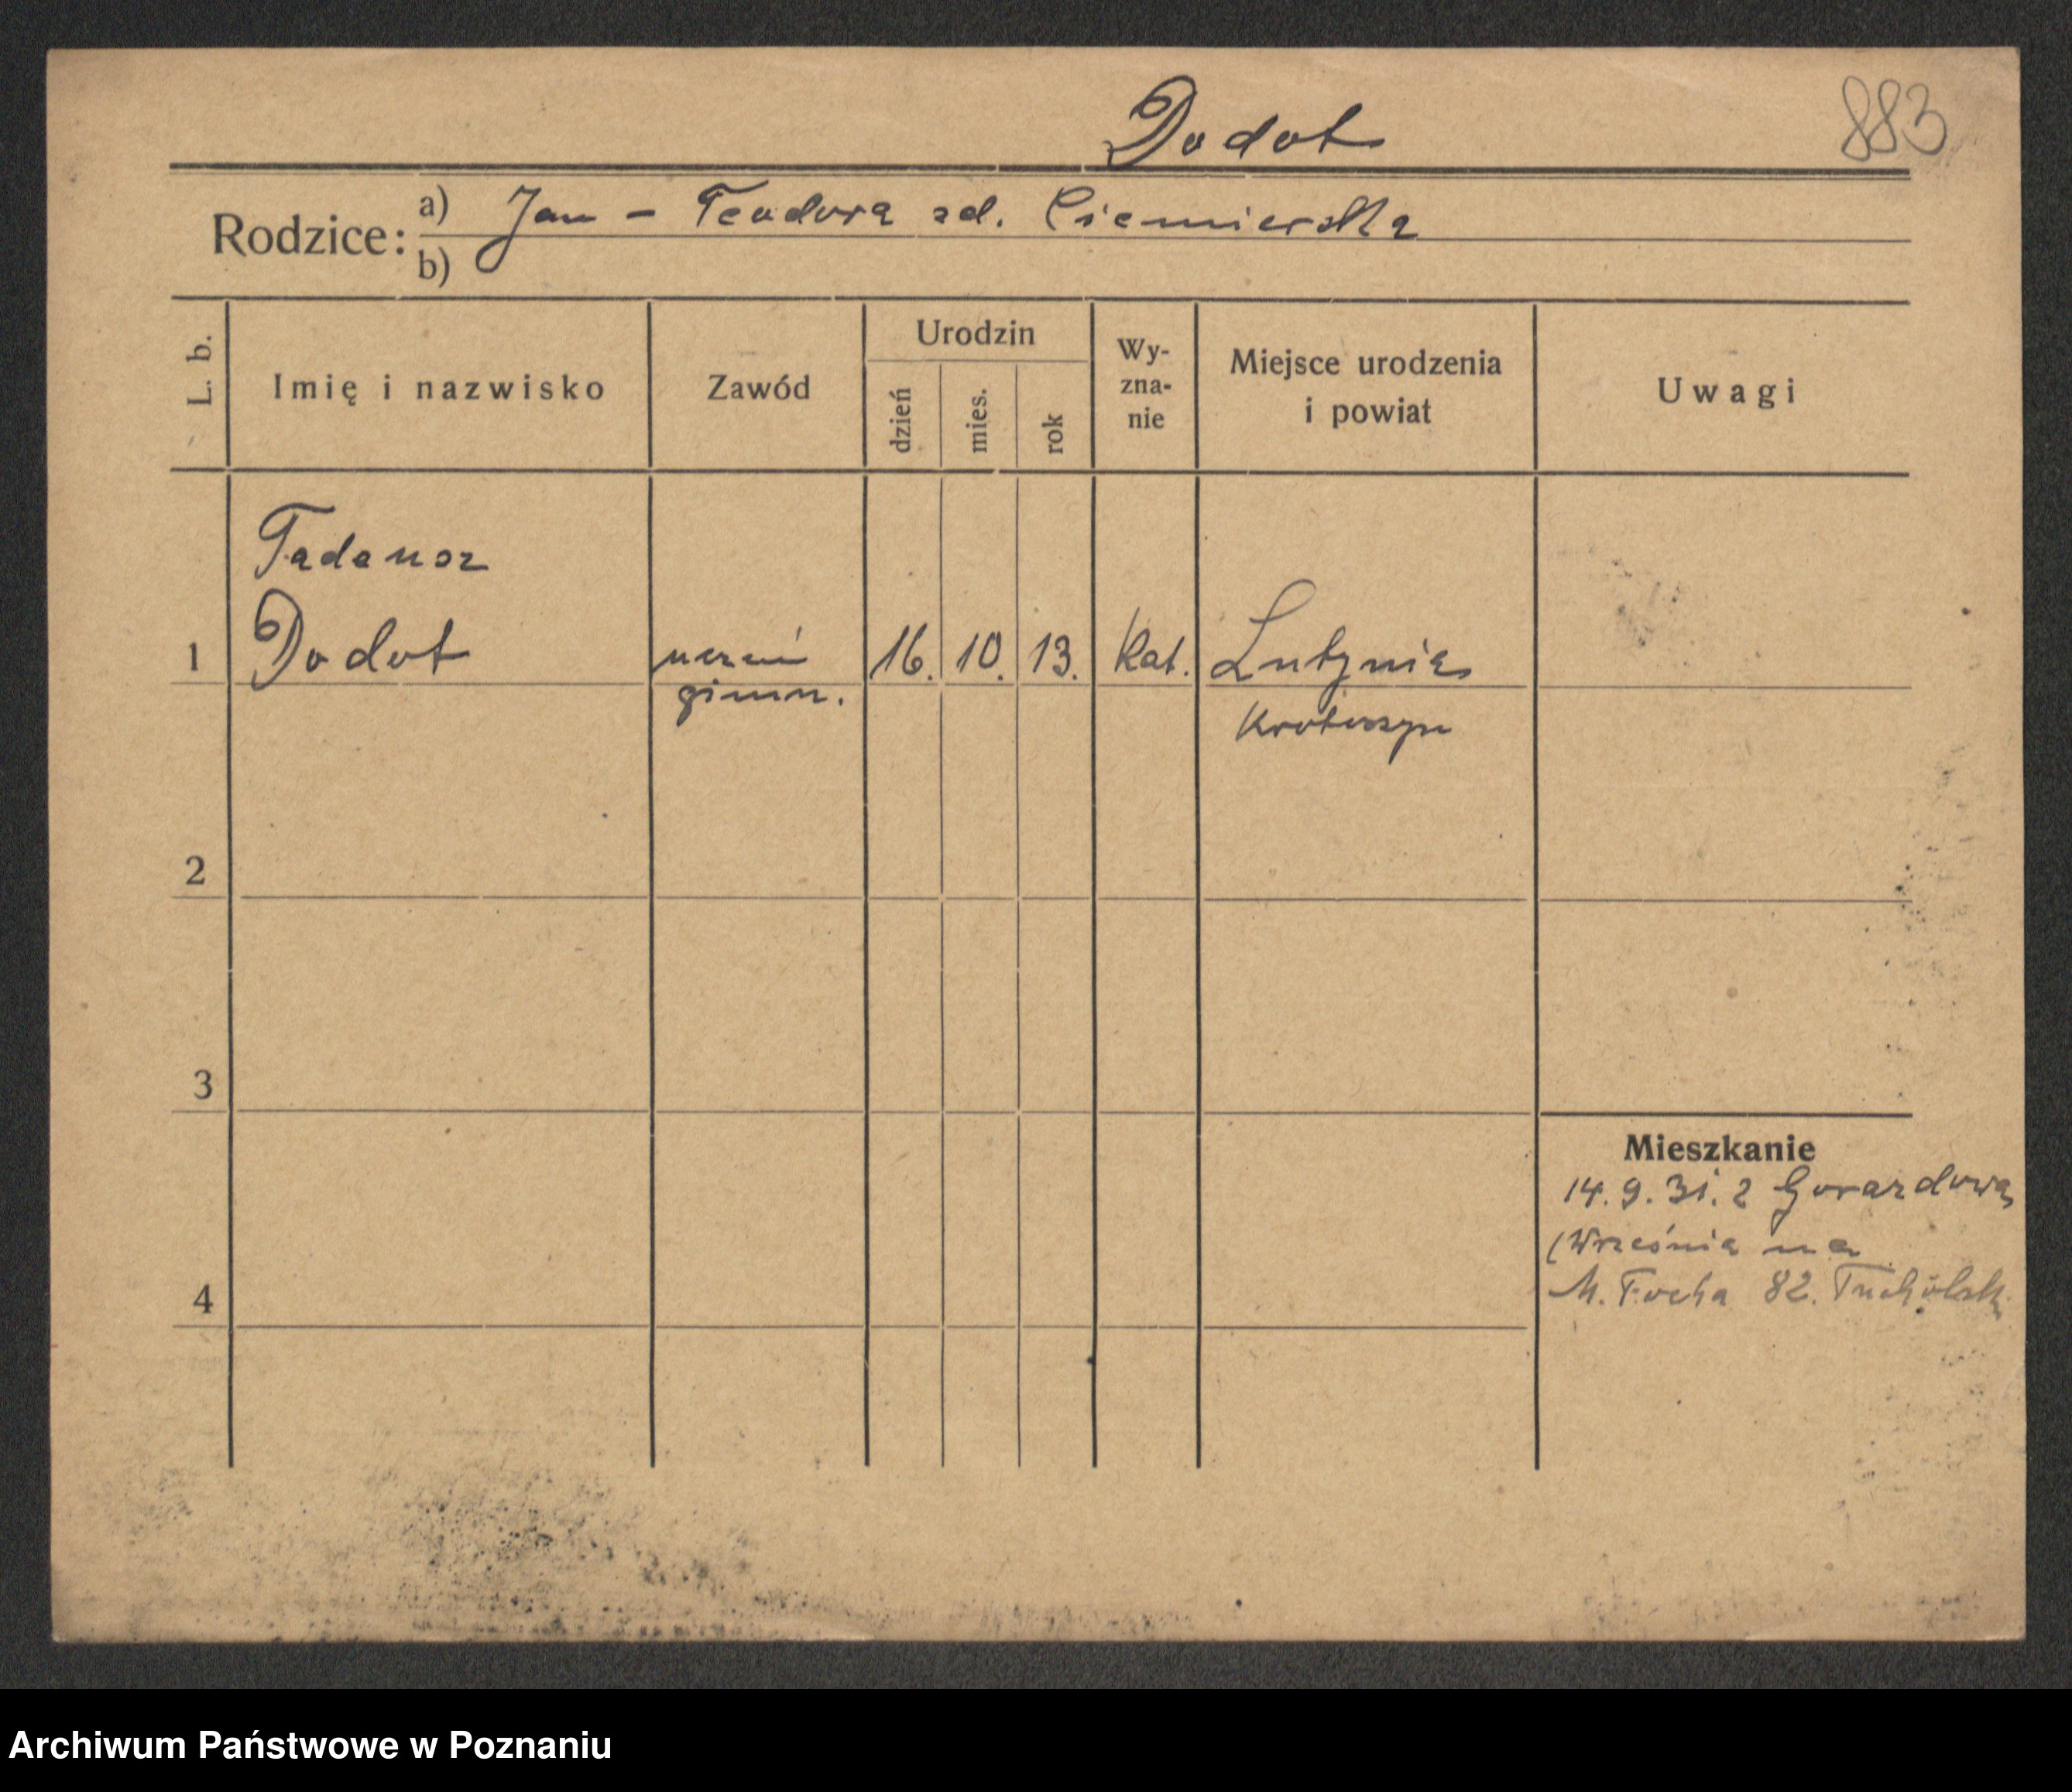 Dodot
883
Rodzice: a) Jan - Teodora zd. Ciemierska
b)
L. b.
Imię i nazwisko
Zawód
Urodzin
dzień
mies.
rok
Wy-
zna-
nie
Miejsce urodzenia
i powiat
Uwagi
Tadeusz
1 Dodot uczeń 16. 10. 13. kat. Lutynia
gimn. Krotoszyn
2
3
Mieszkanie
14. 9. 31. z Gorazdowa
(Września na
4 M. Focha 82.
Archiwum Państwowe w Poznaniu